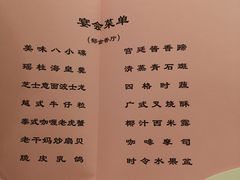 宴会菜单
美味八小碟
瑶柱海皇羹
芝士意面波士龙
越式牛仔粒
泰式咖喱老虎蟹
老干妈炒扇贝
脆皮乳鸽
宫廷酱香蹄
清蒸青石斑
四格时蔬
广式叉烧酥
椰汁西米露
咖啡摩司
时令水果盆